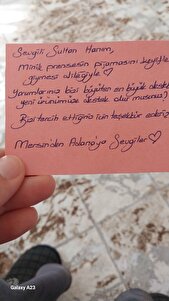 Sevgili Sultan Hanım,
Minik prensesin pijamasını keyifle
giymesi dileğiyle ♡
Yorumlarınız bizi büyüten en büyük destek
yeni ürünümüze destek olur musunuz:)
Bizi tercih ettiğiniz için teşekkür ederiz
Mersinden Adana'ya Sevgiler ♡
Galaxy A23